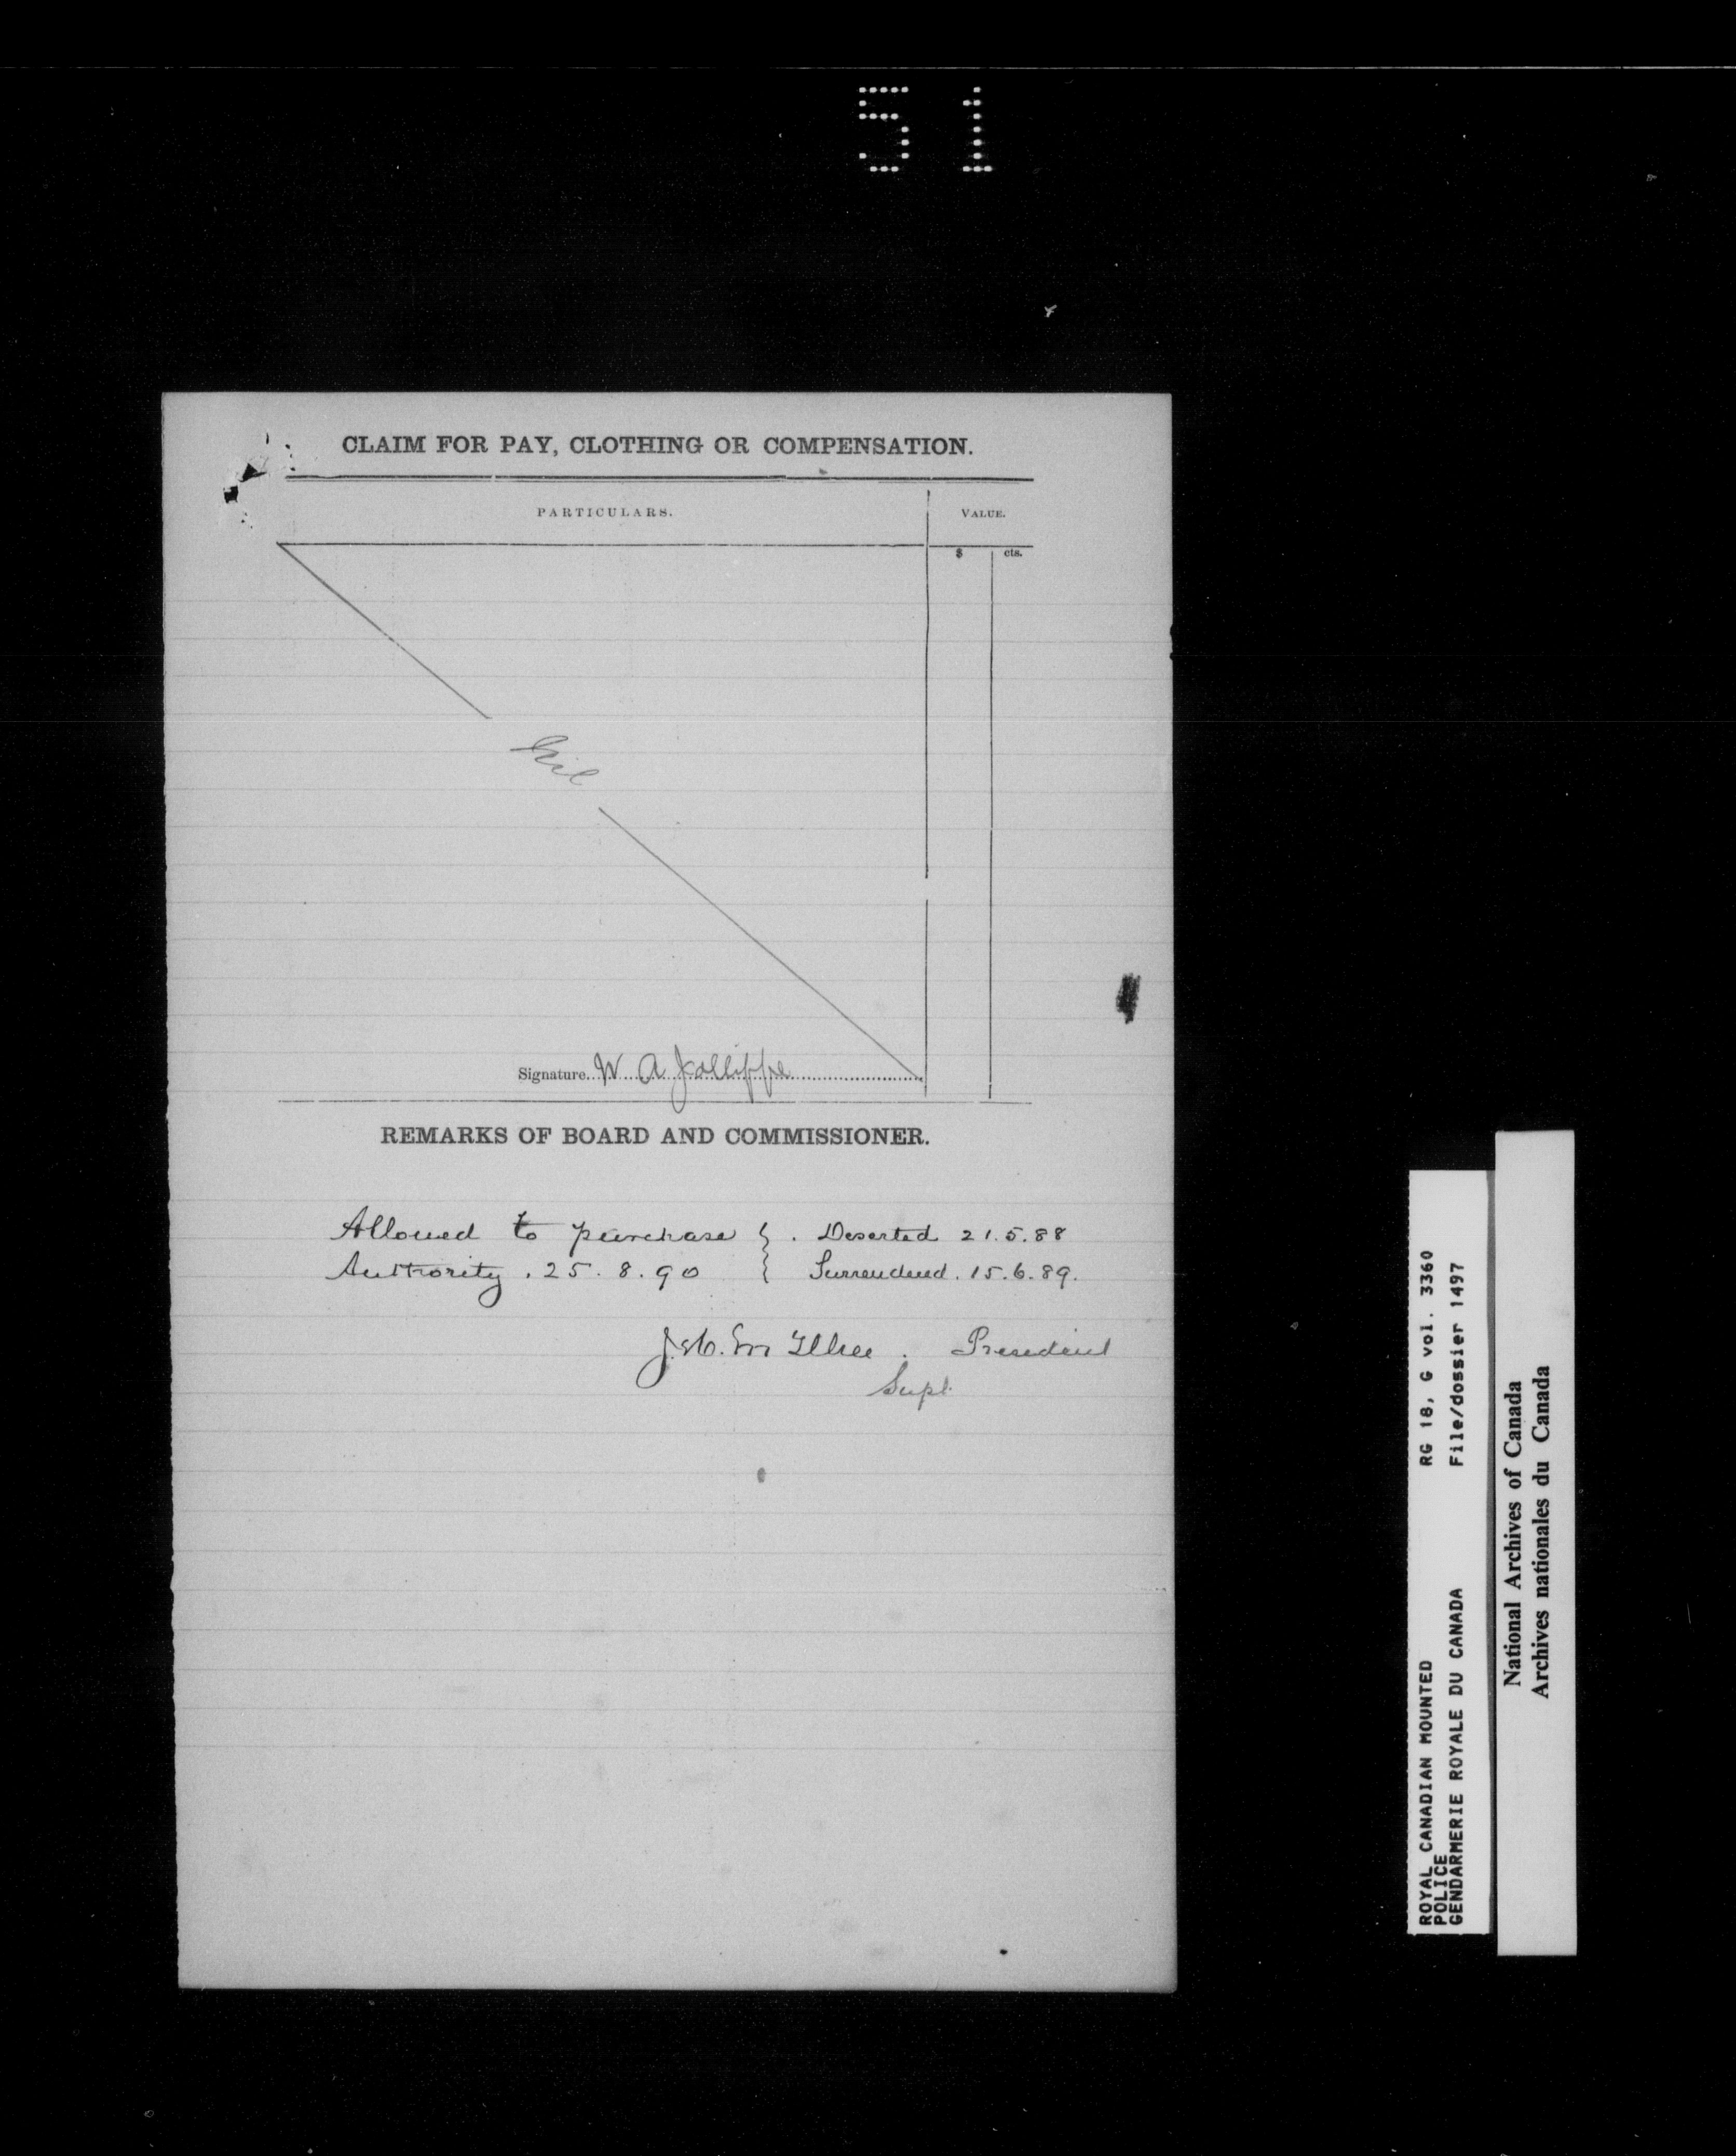 51
CLAIM FOR PAY, CLOTHING OR COMPENSATION.
PARTICULARS.
VALUE.
$ cts.
Nil
Signature W A Jolliffe
REMARKS OF BOARD AND COMMISSIONER.
Allowed to purchase } . Deserted 21.5.88
Authority . 25 . 8 . 90 } Surrendered . 15.6.89.
President
Supt.
ROYAL CANADIAN MOUNTED RG 18, G vol. 3360
POLICE
GENDARMERIE ROYALE DU CANADA File/dossier 1497
National Archives of Canada
Archives nationales du Canada